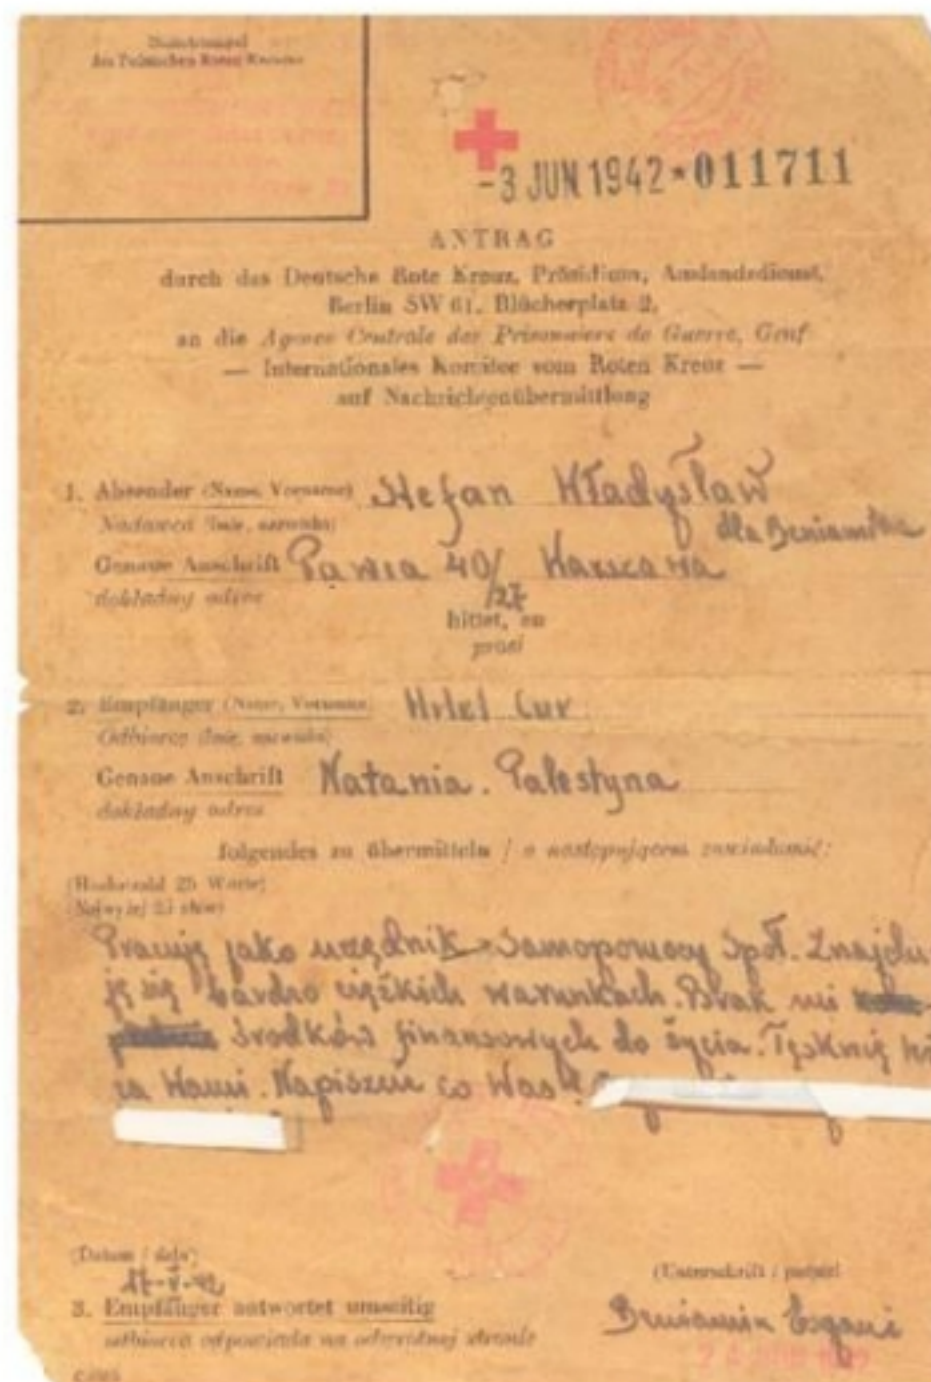 des Polnischen Roten Kreuzes
-3 JUN 1942*011711
ANTRAG
durch das Deutsche Rote Kreuz, Präsidium, Auslandsdienst,
Berlin SW 61, Blücherplatz 2,
an die Agence Centrale des Prisonniers de Guerre, Genf
— Internationales Komitee vom Roten Kreuz —
auf Nachrichtenübermittlung
1. Absender (Name, Vorname) Stefan Władysław
Nadawca (imię, nazwisko) dla Beniamina
Genaue Anschrift Pawia 40/ Warszawa
dokładny adres /27
bittet, an
prosi
2. Empfänger (Name, Vorname) Hilel Cur
Odbiorcę (imię, nazwisko)
Genaue Anschrift Natania. Palestyna
dokładny adres
folgendes zu übermitteln / o następującem zawiadomić:
(Höchstzahl 25 Worte)
(Najwyżej 25 słów)
Pracuję jako urzędnik Samopomocy Społ. Znajdu-
ję się bardzo ciężkich warunkach. Brak mi
środków finansowych do życia. Tęsknię
za Wami. Napiszcie co Was
(Datum / data) (Unterschrift / podpis)
17-V-42
3. Empfänger antwortet umseitig Beniamin
odbiorca odpowiada na odwrotnej stronie